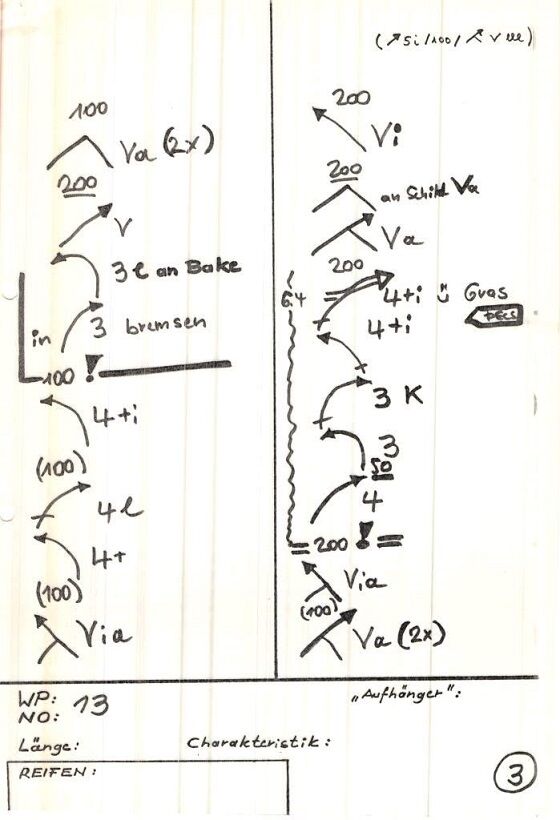 (↗ Si/100/ ↗ V lll)
100
Va (2x)
200
V
3 l an Bake
in
3 bremsen
100 !
4+i
(100)
4 l
4+
(100)
Via
200
Vi
200
an Schild Va
Va
200
6.4
4+i ü Gras
4+i
3 K
3
50
4
200 !
Via
(100)
Va (2x)
WP:
NO: 13
"Aufhänger":
Länge:
Charakteristik:
REIFEN:
3